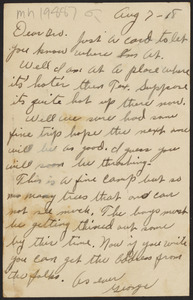 Aug 7-18
Dear Bro. Just a card to let
you know where I'm at.
Well I am at a place where
it's hotter then Tex. Suppose
its quite hot up there now.
Well we sure had some
fine trip hope the next one
will be as good. I guess you
will soon be thrashing.
This is a fine camp but so
so many trees that one can
not see much. The boys must
be getting thined out some
by this time. Now if you write
you can get the address from
the folks. As ever
George